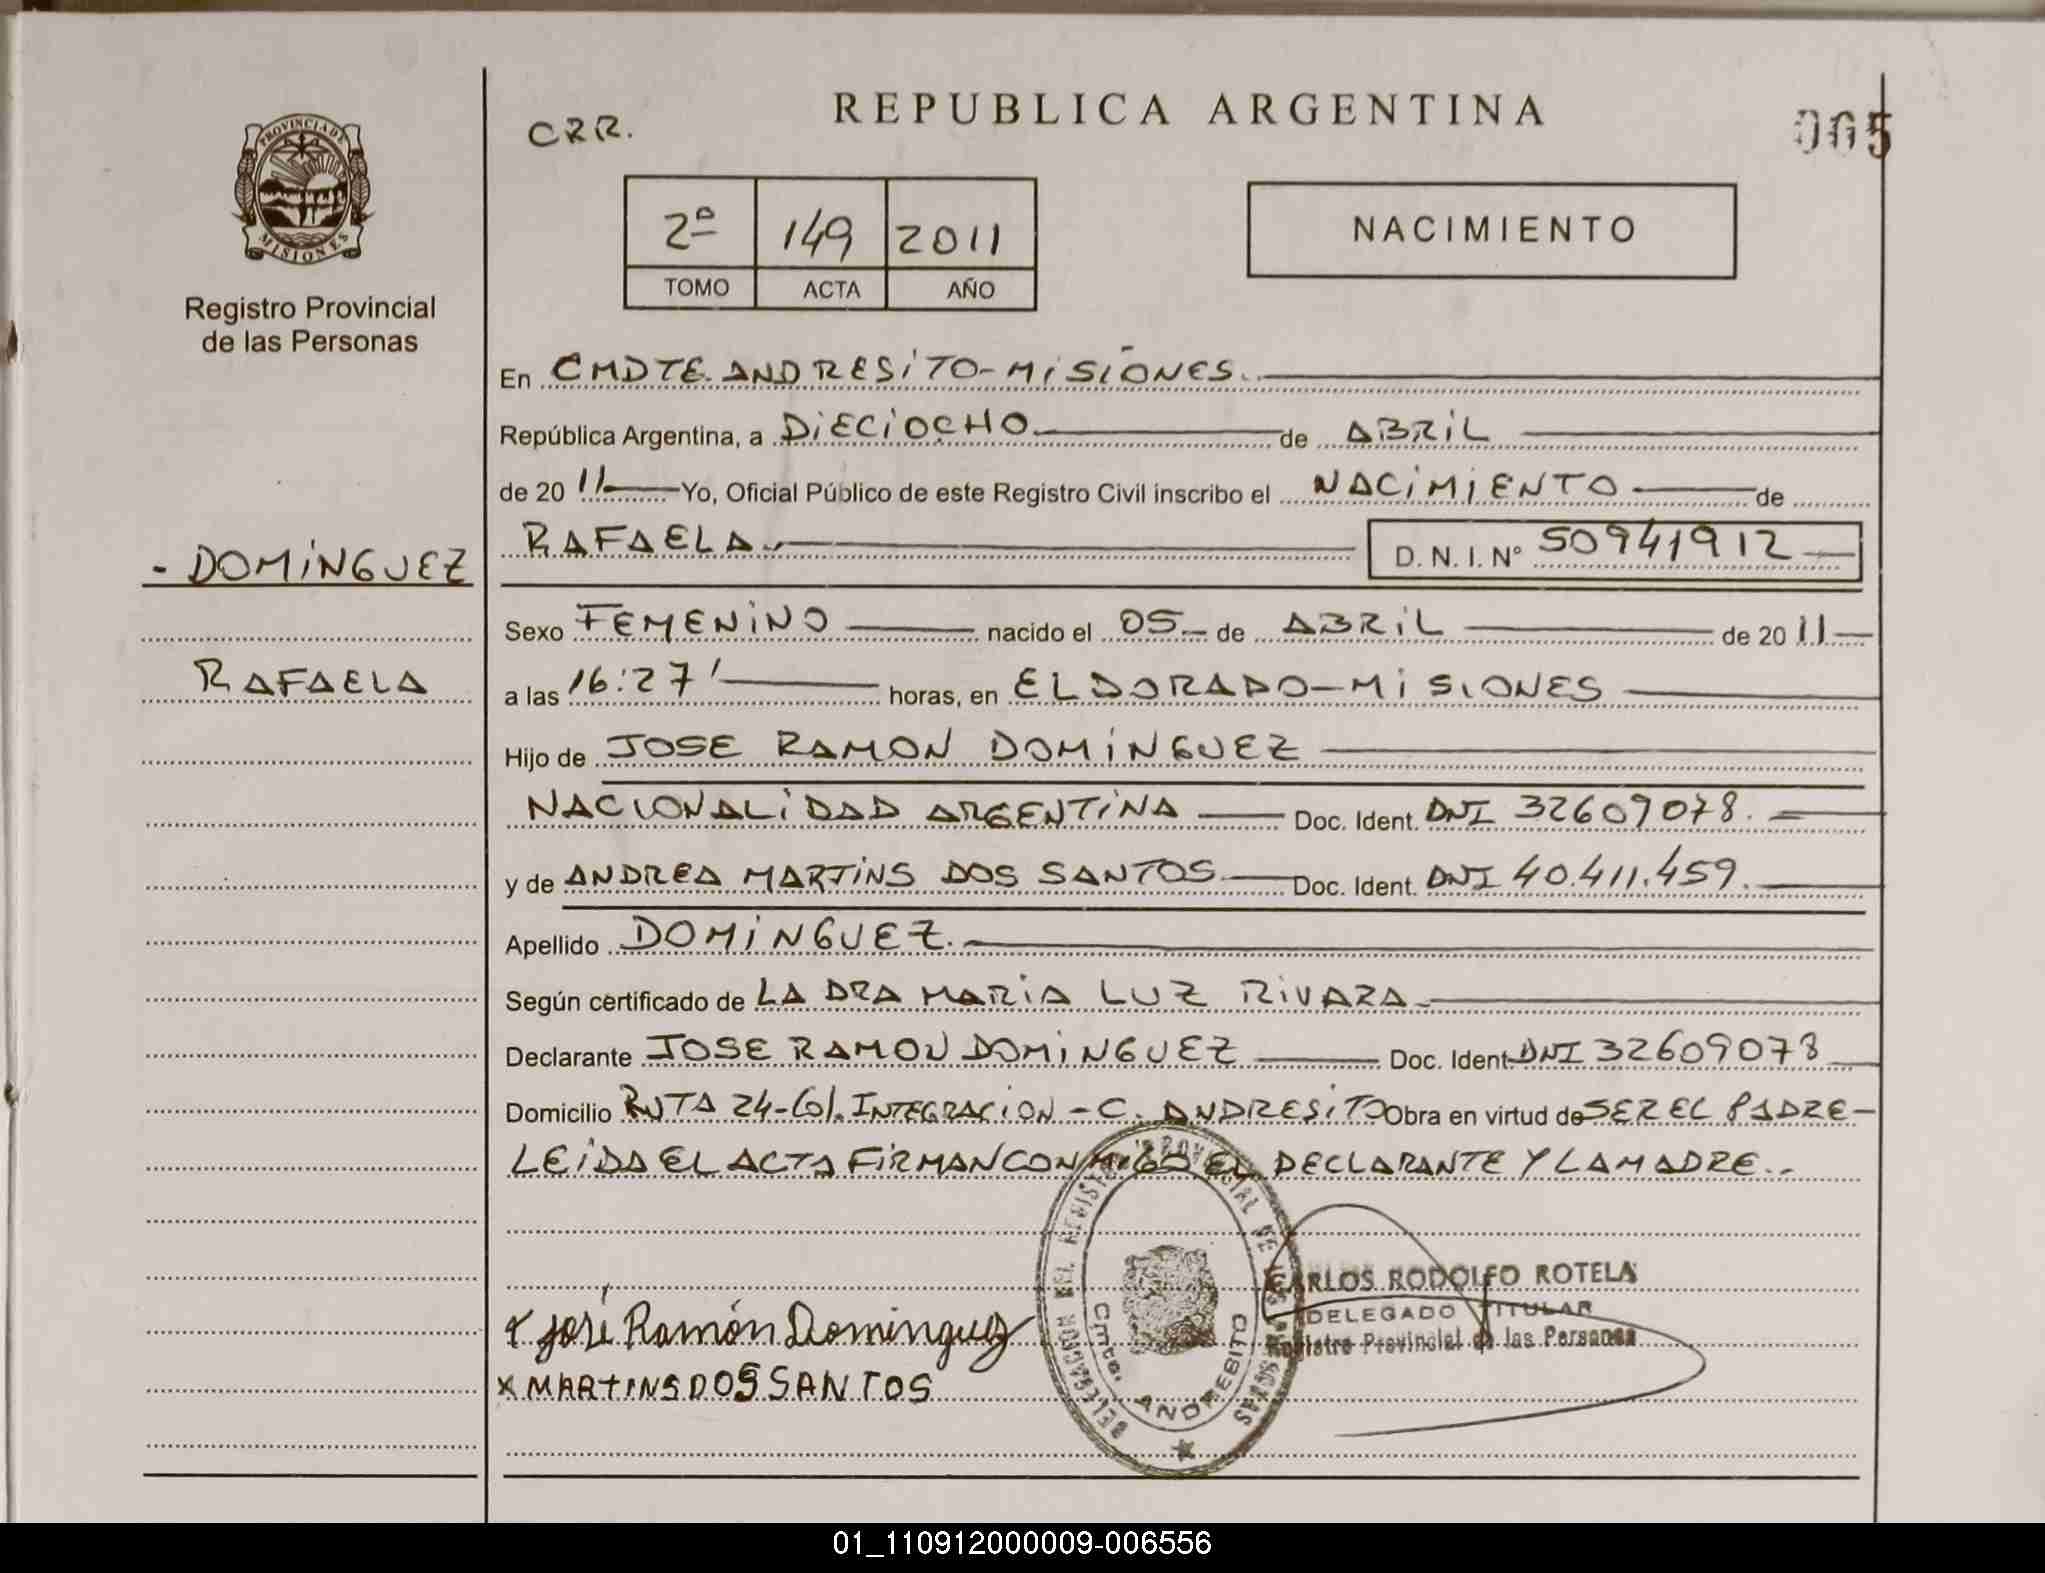 REPUBLICA ARGENTINA
CRR.
005
PROVINCIA DE
MISIONES
2º 149 2011
TOMO ACTA AÑO
NACIMIENTO
Registro Provincial
de las Personas
En CMDTE. ANDRESITO-MISIONES.
República Argentina, a DIECIOCHO de ABRIL
de 2011 Yo, Oficial Público de este Registro Civil inscribo el NACIMIENTO de
RAFAELA. D. N. I. Nº 50941912
- DOMINGUEZ
Sexo FEMENINO nacido el 05 de ABRIL de 2011
RAFAELA
a las 16:27' horas, en ELDORADO-MISIONES
Hijo de JOSE RAMON DOMINGUEZ
NACIONALIDAD ARGENTINA Doc. Ident. DNI 32609078.
y de ANDREA MARTINS DOS SANTOS Doc. Ident. DNI 40.411.459.
Apellido DOMINGUEZ.
Según certificado de LA DRA MARIA LUZ RIVARA
Declarante JOSE RAMON DOMINGUEZ Doc. Ident. DNI 32609078
Domicilio RUTA 24-Col. INTEGRACION - C. ANDRESITO Obra en virtud de SER EL PADRE-
LEIDA EL ACTA FIRMAN CONMIGO EL DECLARANTE Y LA MADRE..
DELEGACION DEL REGISTRO PROVINCIAL DE LAS PERSONAS
Cmte. ANDRESITO
CARLOS RODOLFO ROTELA
DELEGADO TITULAR
Registro Provincial de las Personas
x José Ramón Dominguez
x MARTINS DOS SANTOS
01_110912000009-006556